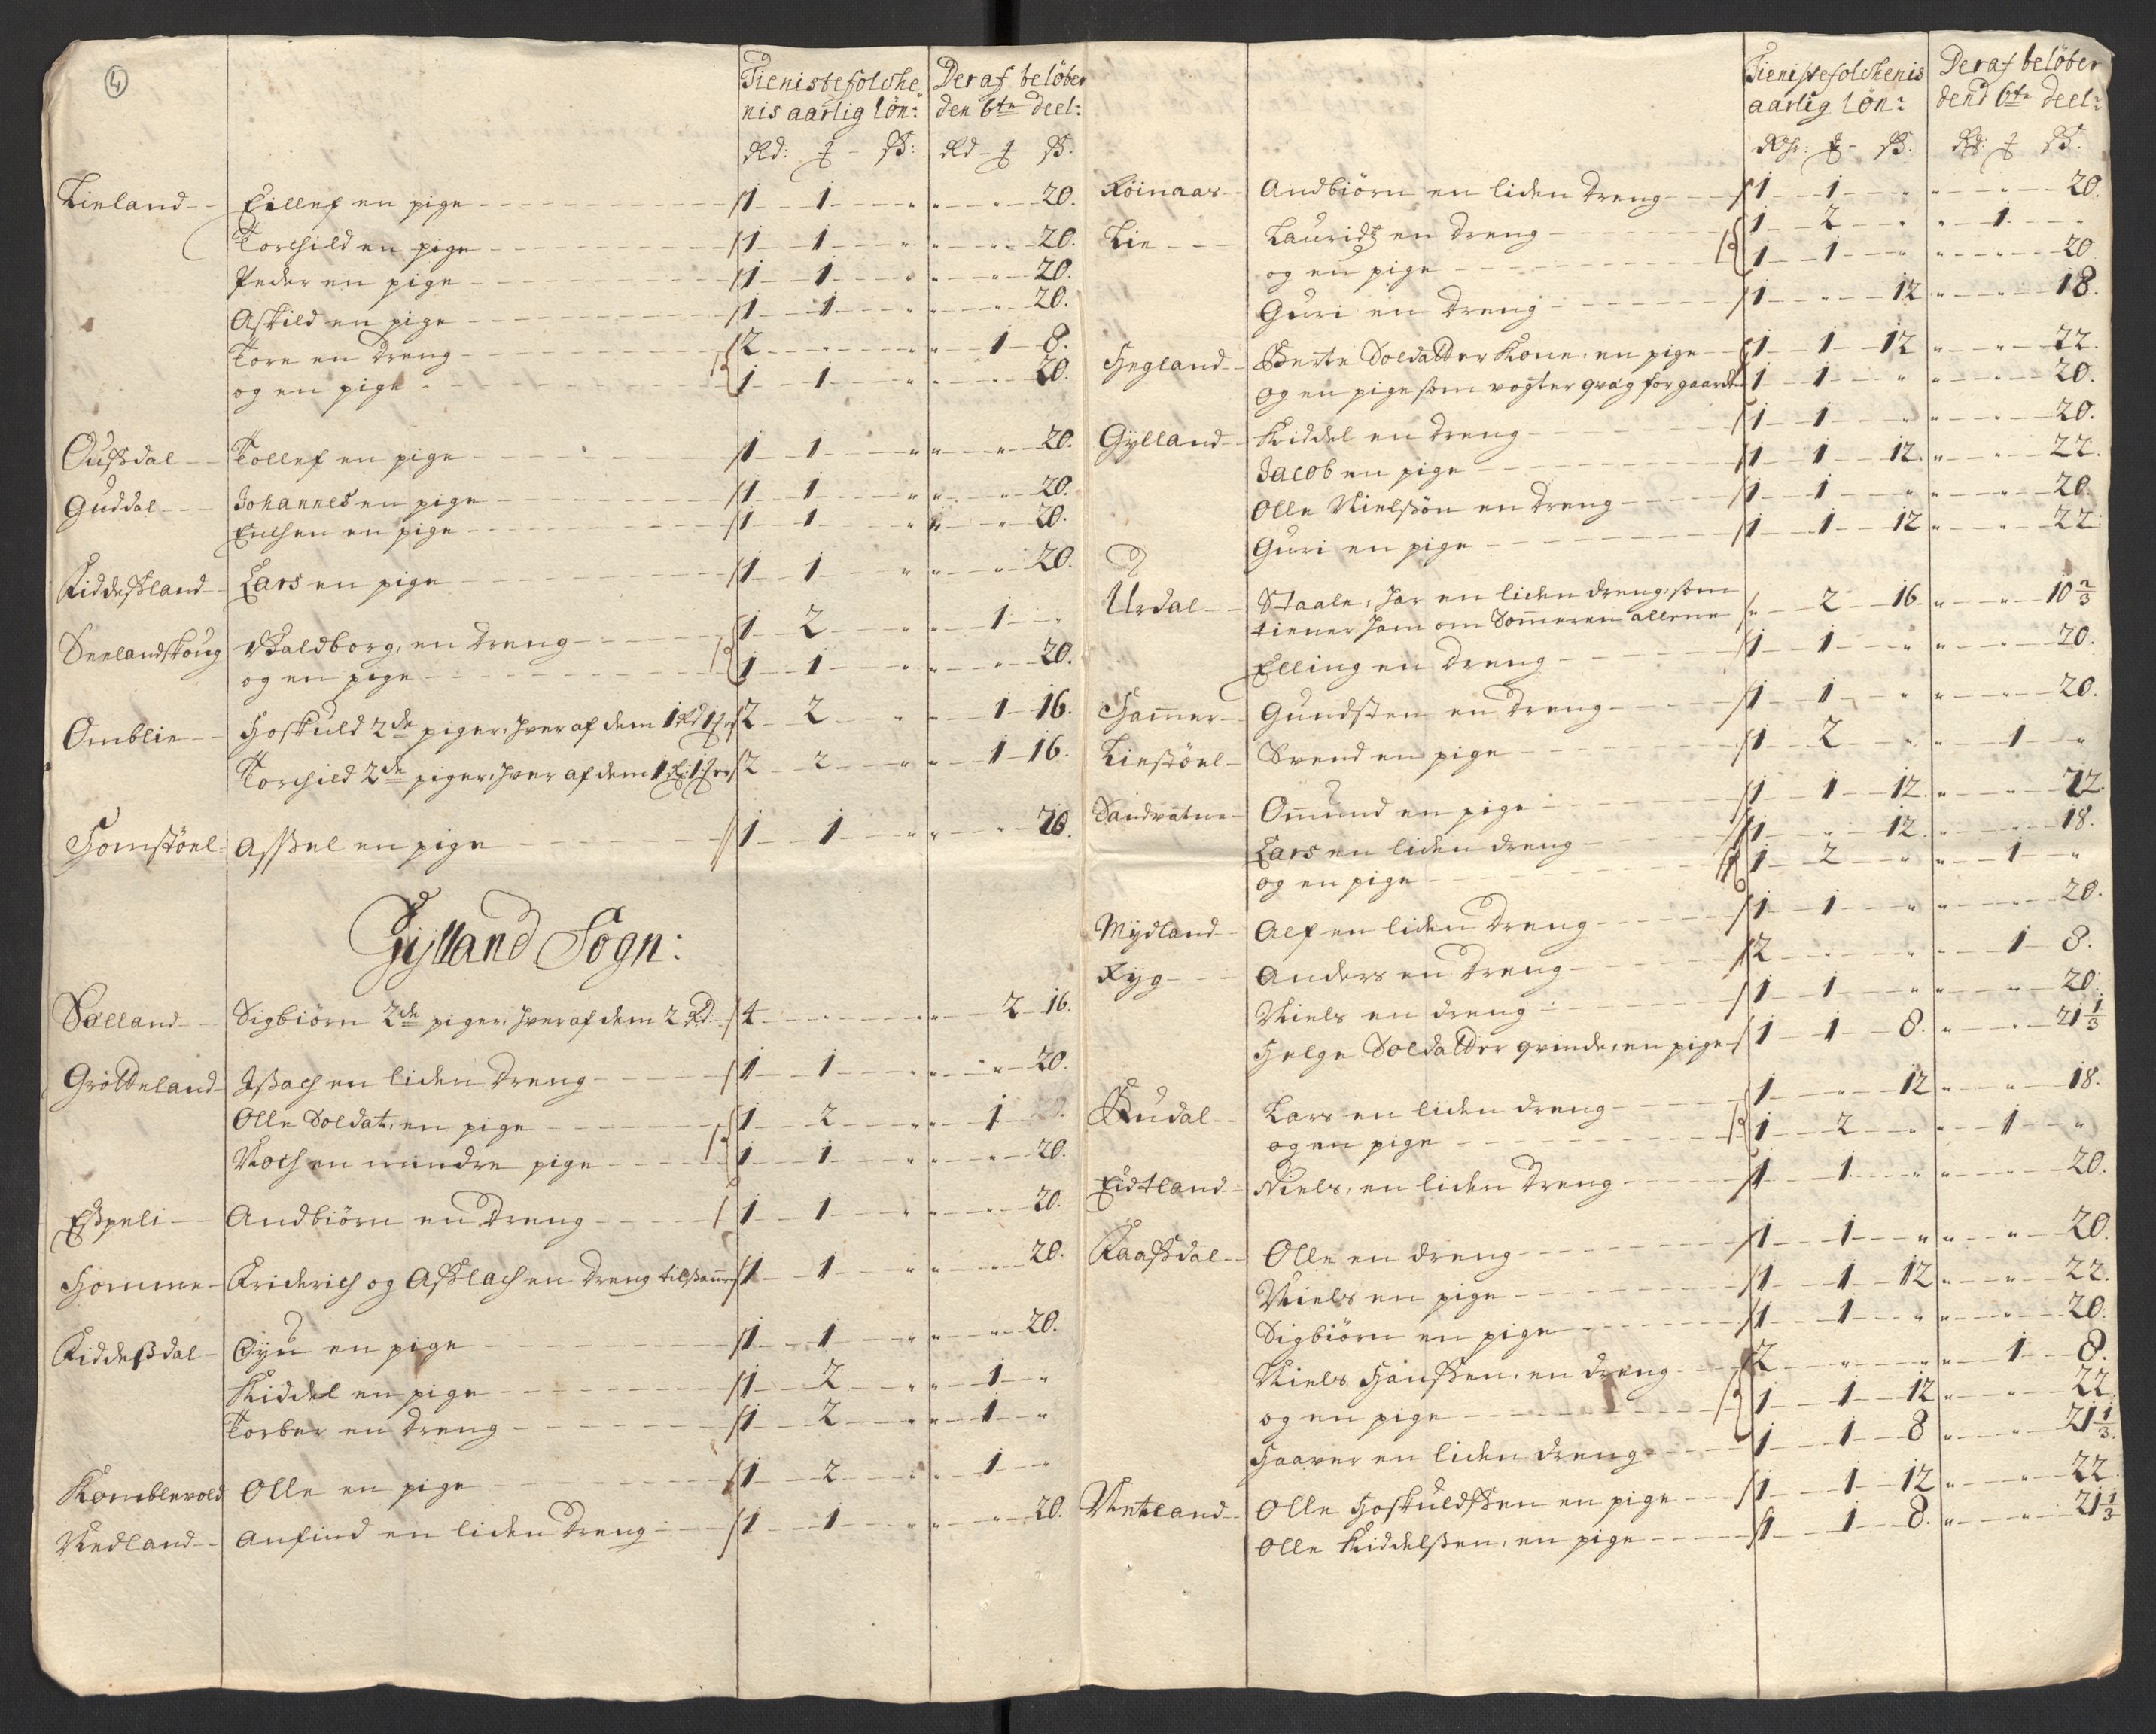 4
Tienistefolche
nis aarlig lön:
Rd: ƒ - ß:
Deraf belöber
den 6te deel:
Rd - ƒ ß.
Lieland - Eillef en pige - 1 - 1 - " - " - " - 20.
Torchild en pige - 1 - 1 - " - " - " - 20.
Peder en pige - 1 - 1 - " - " - " - 20.
Askild en pige - 1 - 1 - " - " - " - 20.
Tore en dreng - 2 - " - " - " - 1 - 8.
og en pige - 1 - 1 - " - " - " - 20.
Oufsdal - Tollef en pige - 1 - 1 - " - " - " - 20.
Guddal - Johannes en pige - 1 - 1 - " - " - " - 20.
en pige - 1 - 1 - " - " - " - 20.
Fiddesland - Lars en pige - 1 - 1 - " - " - " - 20.
Seelandskoug - Valdborg, en dreng - 1 - 2 - " - " - 1 - "
og en pige - 1 - 1 - " - " - " - 20.
Omblie - Hoskuld 2de piger, hver af dem 1 Rd 1 - 2 - 2 - " - " - 1 - 16.
Torchild 2de piger, hver af dem 1 Rd 1 - 2 - 2 - " - " - 1 - 16.
Homstöel - Assel en pige - 1 - 1 - " - " - " - 20.
Gylland Sogn:
Salland - Sigbiörn 2de piger, hver af dem 2 Rd - 4 - " - " - " - 2 - 16.
Grötteland - Isach en liden dreng - 1 - 1 - " - " - " - 20.
Olle Soldat, en pige - 1 - 2 - " - " - 1
Noch en mindre pige - 1 - 1 - " - " - " - 20.
Espeli - Andbiörn en dreng - 1 - 1 - " - " - " - 20.
Homme - Friderich og Aslach en dreng tilsammen - 1 - 1 - " - " - " - 20.
Fiddesdal - en pige - 1 - 1 - " - " - " - 20.
Kiddel en pige - 1 - 2 - " - " - 1 - "
Torber en dreng - 1 - 2 - " - " - 1 - "
Komblevold - Olle en pige - 1 - 2 - " - " - 1 - "
Nedland - Anfind en liden dreng - 1 - 1 - " - " - " - 20.
Tienistefolchenis
aarlig lön:
Rdr: ƒ - ß.
Deraf belöber
dend 6te deel:
Rd: ƒ ß.
Röinaas - Andbiörn en liden dreng - 1 - 1 - " - " - " - 20.
Lie - Lauridz en dreng - 1 - 2 - " - " - 1 - "
og en pige - 1 - 1 - " - " - " - 20
Guri en dreng - 1 - " - 12 - " - " - 18.
Hegland - Berte Soldatter Kone, en pige - 1 - 1 - 12 - " - " - 22.
og en pige som vogter qvæg for gaarden - 1 - 1 - " - " - " - 20.
Gylland - Kiddel en dreng - 1 - 1 - " - " - " - 20.
Jacob en pige - 1 - 1 - 12. - " - " - 22.
Olle Nielsön en dreng - 1 - 1 - " - " - " - 20.
Guri en pige - 1 - 1 - 12 - " - " - 22.
Urdal - Staale, har en liden dreng, som
tiener ham om Sommeren allene - " - 2 - 16 - " - " - 10 2/3
Elling en dreng - 1 - 1 - " - " - " - 20.
Hammer - Gundsten en dreng - 1 - 1 - " - " - " - 20.
Liestöel - Svend en pige - 1 - 2 - " - " - 1 - "
Sandvatne - Omund en pige - 1 - 1 - 12. - " - " - 22.
Lars en liden dreng - 1 - " - 12. - " - " - 18.
og en pige - 1 - 2 - " - " - 1 - "
Mydland - Alf en liden dreng - 1 - 1 - " - " - " - 20.
Ryg - Anders en dreng - 2 - " - " - " - 1 - 8.
Niels en dreng - 1 - 1 - " - " - " - 20.
Helge Soldatter qvinde, en pige - 1 - 1 - 8. - " - " - 21 1/3
Budal - Lars en liden dreng - 1 - " - 12 - " - " - 18.
og en pige - 1 - 2 - " - " - 1 - "
Eidtland - Niels, en liden dreng - 1 - 1 - " - " - " - 20.
Raasdal - Olle en dreng - 1 - 1 - " - " - " - 20.
Niels en pige - 1 - 1 - 12 - " - " - 22.
Sigbiörn en pige - 1 - 1 - " - " - " - 20.
Niels Hansen, en dreng - 2 - " - " - " - 1 - 8.
og en pige - 1 - 1 - 12 - " - " - 22.
Haaver en liden dreng - 1 - 1 - 8 - " - " - 21 1/3.
Netland - Olle Hoskuldsen en pige - 1 - 1 - 12 - " - " - 22.
Olle Kiddelsen, en pige - 1 - 1 - 8. - " - " - 21 1/3